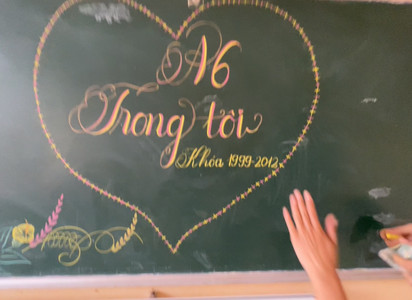 A6
Trong tôi
Khóa 1999-2012